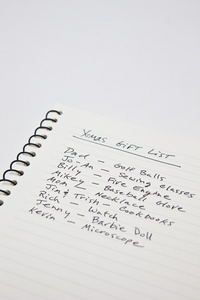 Xmas GIFT LIST
Dad — Golf Balls
Jo-An — Sewing classes
Billy — Fire Engine
Mikey — Baseball Glove
Mom — Necklace
Jim & Trish — Cookbooks
Rich — Watch
Jenny — Barbie Doll
Kevin — Microscope